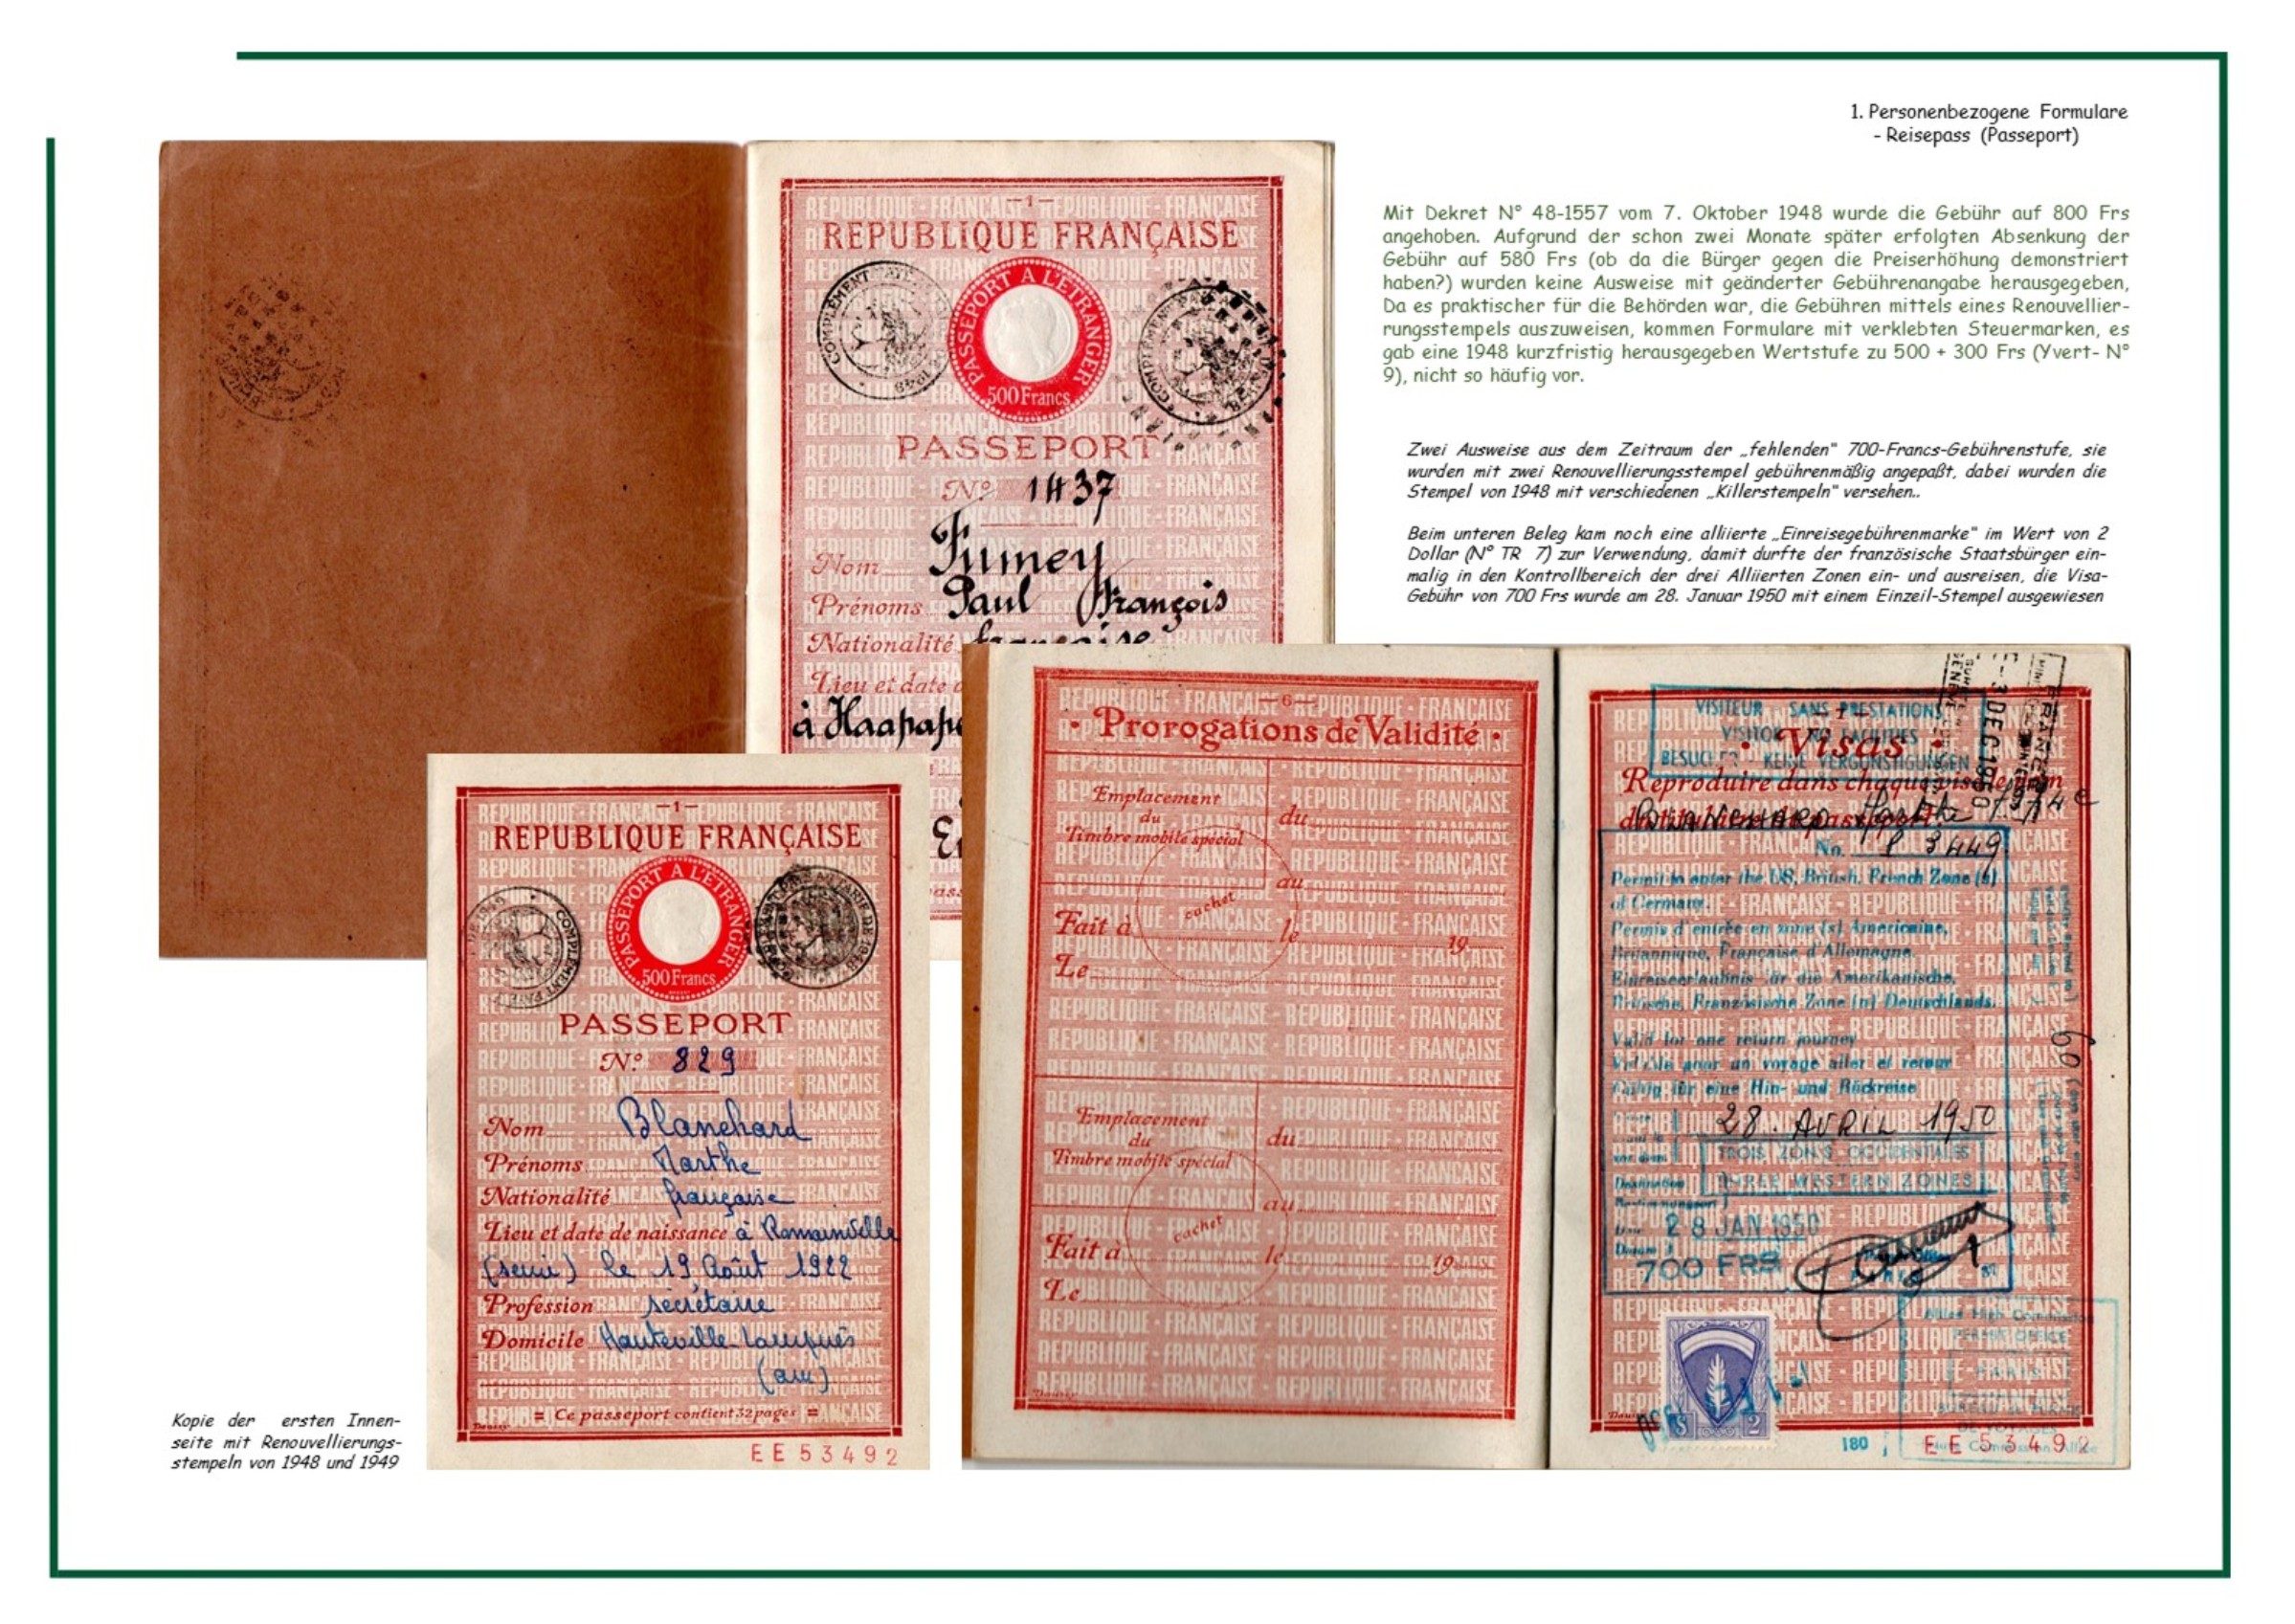 1. Personenbezogene Formulare
- Reisepass (Passeport)
Mit Dekret N° 48-1557 vom 7. Oktober 1948 wurde die Gebühr auf 800 Frs
angehoben. Aufgrund der schon zwei Monate später erfolgten Absenkung der
Gebühr auf 580 Frs (ob da die Bürger gegen die Preiserhöhung demonstriert
haben?) wurden keine Ausweise mit geänderter Gebührenangabe herausgegeben,
Da es praktischer für die Behörden war, die Gebühren mittels eines Renouvellier-
rungsstempels auszuweisen, kommen Formulare mit verklebten Steuermarken, es
gab eine 1948 kurzfristig herausgegeben Wertstufe zu 500 + 300 Frs (Yvert- N°
9), nicht so häufig vor.
Zwei Ausweise aus dem Zeitraum der „fehlenden" 700-Francs-Gebührenstufe, sie
wurden mit zwei Renouvellierungsstempel gebührenmäßig angepaßt, dabei wurden die
Stempel von 1948 mit verschiedenen „Killerstempeln" versehen..
Beim unteren Beleg kam noch eine alliierte „Einreisegebührenmarke" im Wert von 2
Dollar (N° TR 7) zur Verwendung, damit durfte der französische Staatsbürger ein-
malig in den Kontrollbereich der drei Alliierten Zonen ein- und ausreisen, die Visa-
Gebühr von 700 Frs wurde am 28. Januar 1950 mit einem Einzeil-Stempel ausgewiesen
-1-
REPUBLIQUE FRANÇAISE
PASSEPORT A L'ETRANGER
500 Francs
COMPLÉMENT PAYÉ
1948
PASSEPORT
N° 1437
Nom Fumey
Prénoms Paul François
Nationalité française
Lieu et date
à Haapape
-1-
REPUBLIQUE FRANÇAISE
PASSEPORT A L'ETRANGER
500 Francs
COMPLÉMENT PAYÉ
PASSEPORT
N° 829
Nom Blanchard
Prénoms Marthe
Nationalité française
Lieu et date de naissance à Romainville
(seine) le 19 Août 1922
Profession secrétaire
Domicile Hauteville-Lompnès
(ain)
= Ce passeport contient 32 pages =
EE 53492
-6-
Prorogations de Validité
Emplacement
du
Timbre mobile spécial
du
au
cachet
Fait à
le 19
Le
Emplacement
du
Timbre mobile spécial
du
au
cachet
Fait à
le 19
Le
VISITEUR SANS PRESTATIONS
VISITOR NO FACILITIES
BESUCHER KEINE VERGÜNSTIGUNGEN
Visas
-3 DEC 1950
BLANCHARD Marthe
No. 3449
Permit to enter the US, British, French Zone (s)
of Germany.
Permis d'entrée en zone (s) Américaine,
Britannique, Française d'Allemagne.
Einreiseerlaubnis für die Amerikanische,
Britische, Französische Zone (n) Deutschlands.
Valid for one return journey
Valable pour un voyage aller et retour
Gültig für eine Hin- und Rückreise
60
28. AVRIL 1950
TROIS ZONES OCCIDENTALES
THREE WESTERN ZONES
28 JAN 1950
700 FRS
Allied High Commission
PERMIT OFFICE
PARIS
$ 2
180
EE 53492
Kopie der ersten Innen-
seite mit Renouvellierungs-
stempeln von 1948 und 1949